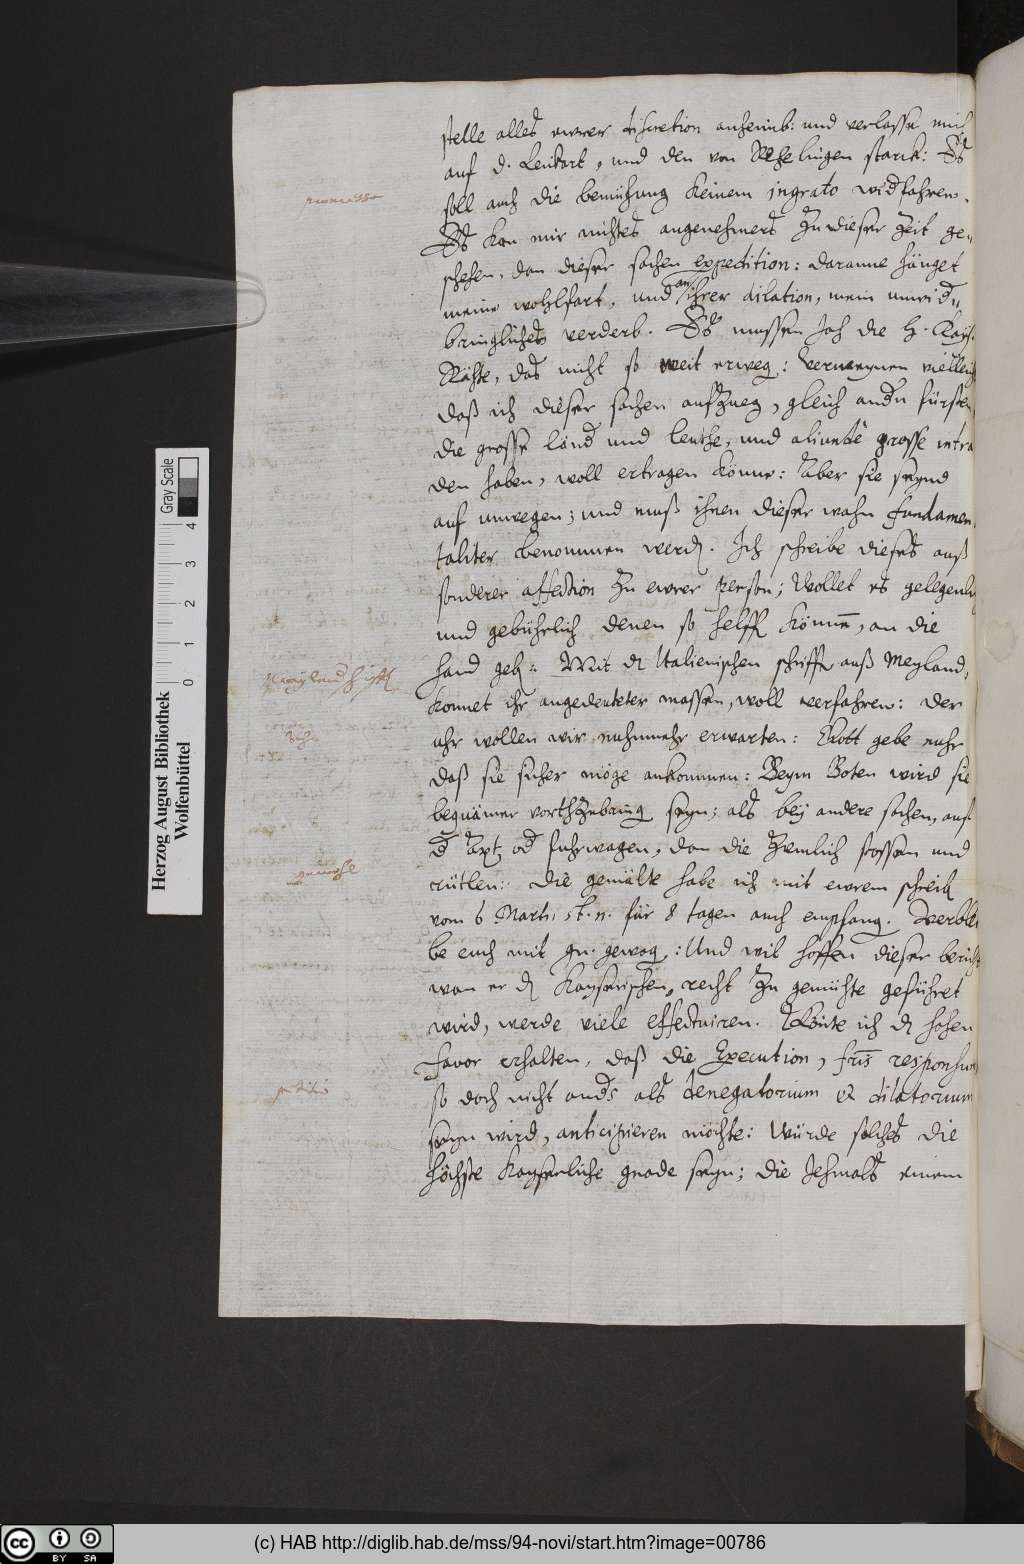 stelle alles ewrer discretion anheimb: und verlasse mich
auf d. Leukart, und den von Rehelingen starck: Es
soll auch die bemühung keinem ingrato widfahren.
promessa
Es kan mir nichtes angenehmers zu dieser Zeit ge„
schehen, dan dieser sachen expedition: daranne hänget
meine wohlfart, und an ihrer dilation, mein unwid„
bringliches verderb. Es mussen Ich die H. Kays.
Rähte, das nicht so weit erweg: Vermeynen vielleich
daß ich dieser sachen aufzueg, gleich andn fürsten
die grosse länd und leuthe, und aliunde grosse intra
den haben, woll ertragen könne: Aber sie seynd
auf unwegen; und muß ihnen dieser wahn fundamen„
taliter benommen werd. Ich schreibe dieses auß
sonderer affection zu ewrer person; Wollet es gelegenlig
und gebührlich denen so helff können, an die
hand geb: Mit d Italienischen schiffe auß Meyland,
Meyland schiff
konnet ihr angedeuteter massen, woll verfahren: der
uhr wollen wir nuhnmehr erwarten: Gott gebe nuhr
Uhr
daß sie sicher möge ankommen: Beym Boten wird sie
bequämer vorthzubring seyn; als bey andere sachen, auf
d Axt od fuhrwagen, dan die zimlich stossen und
gemehle
rütlen: die gemälte habe ich mit ewrem schreib
vom 6 Martii st. n. für 8 tagen auch empfang. Verblei
be euch mit gn. gewog: Und wil hoffen dieser bericht
wan er d Kayserischen, recht zu gemühte geführet
wird, werde viele effectuiren. Könte ich d hohen
favor erhalten, daß die Execution, fris responsum
petitio
so doch nicht ands als denegatorium et dilatorium
seyn wird, anticipieren möchte: Würde solches die
höchste Kayserliche gnade seyn; die Jehmals einem
Herzog August Bibliothek
Wolfenbüttel
0 1 2 3 4 Gray Scale
cc BY SA
(c) HAB http://diglib.hab.de/mss/94-novi/start.htm?image=00786